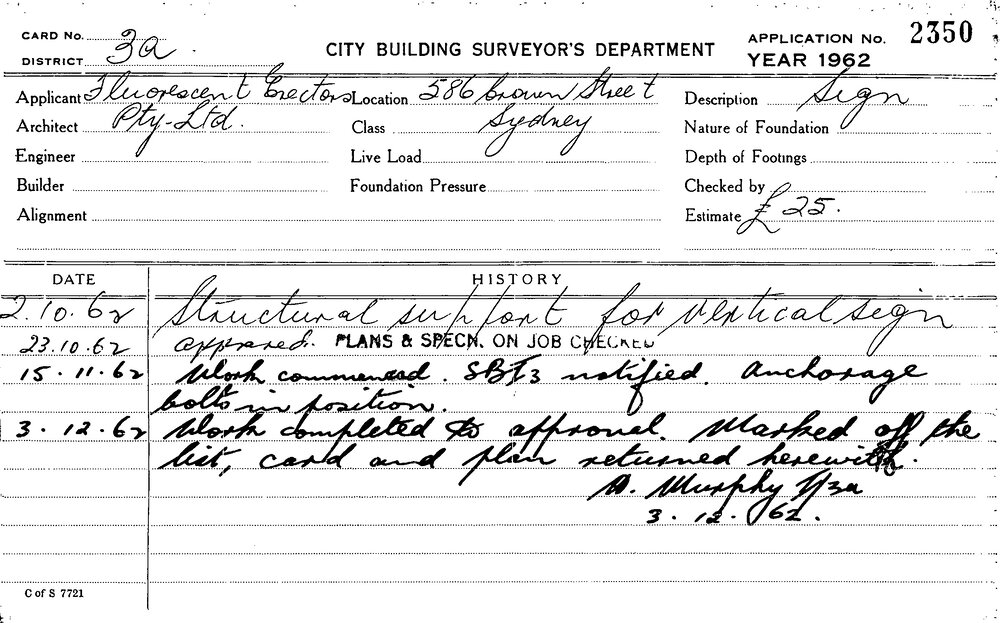 CARD No.
DISTRICT 3a
CITY BUILDING SURVEYOR'S DEPARTMENT
APPLICATION No. 2350
YEAR 1962
Applicant Fluorescent Erectors Location 586 Crown Street Description Sign
Architect Pty. Ltd. Class Sydney Nature of Foundation
Engineer Live Load Depth of Footings
Builder Foundation Pressure Checked by
Alignment Estimate £25.
DATE HISTORY
2.10.62 Structural support for vertical sign
23.10.62 approved. PLANS & SPECN. ON JOB CHECKED
15.11.62 Work commenced. notified. Anchorage
bolts in position.
3.12.62 Work completed to approval. Marked off the
list, card and plan returned herewith.
A. Murphy
3.12.62.
C of S 7721